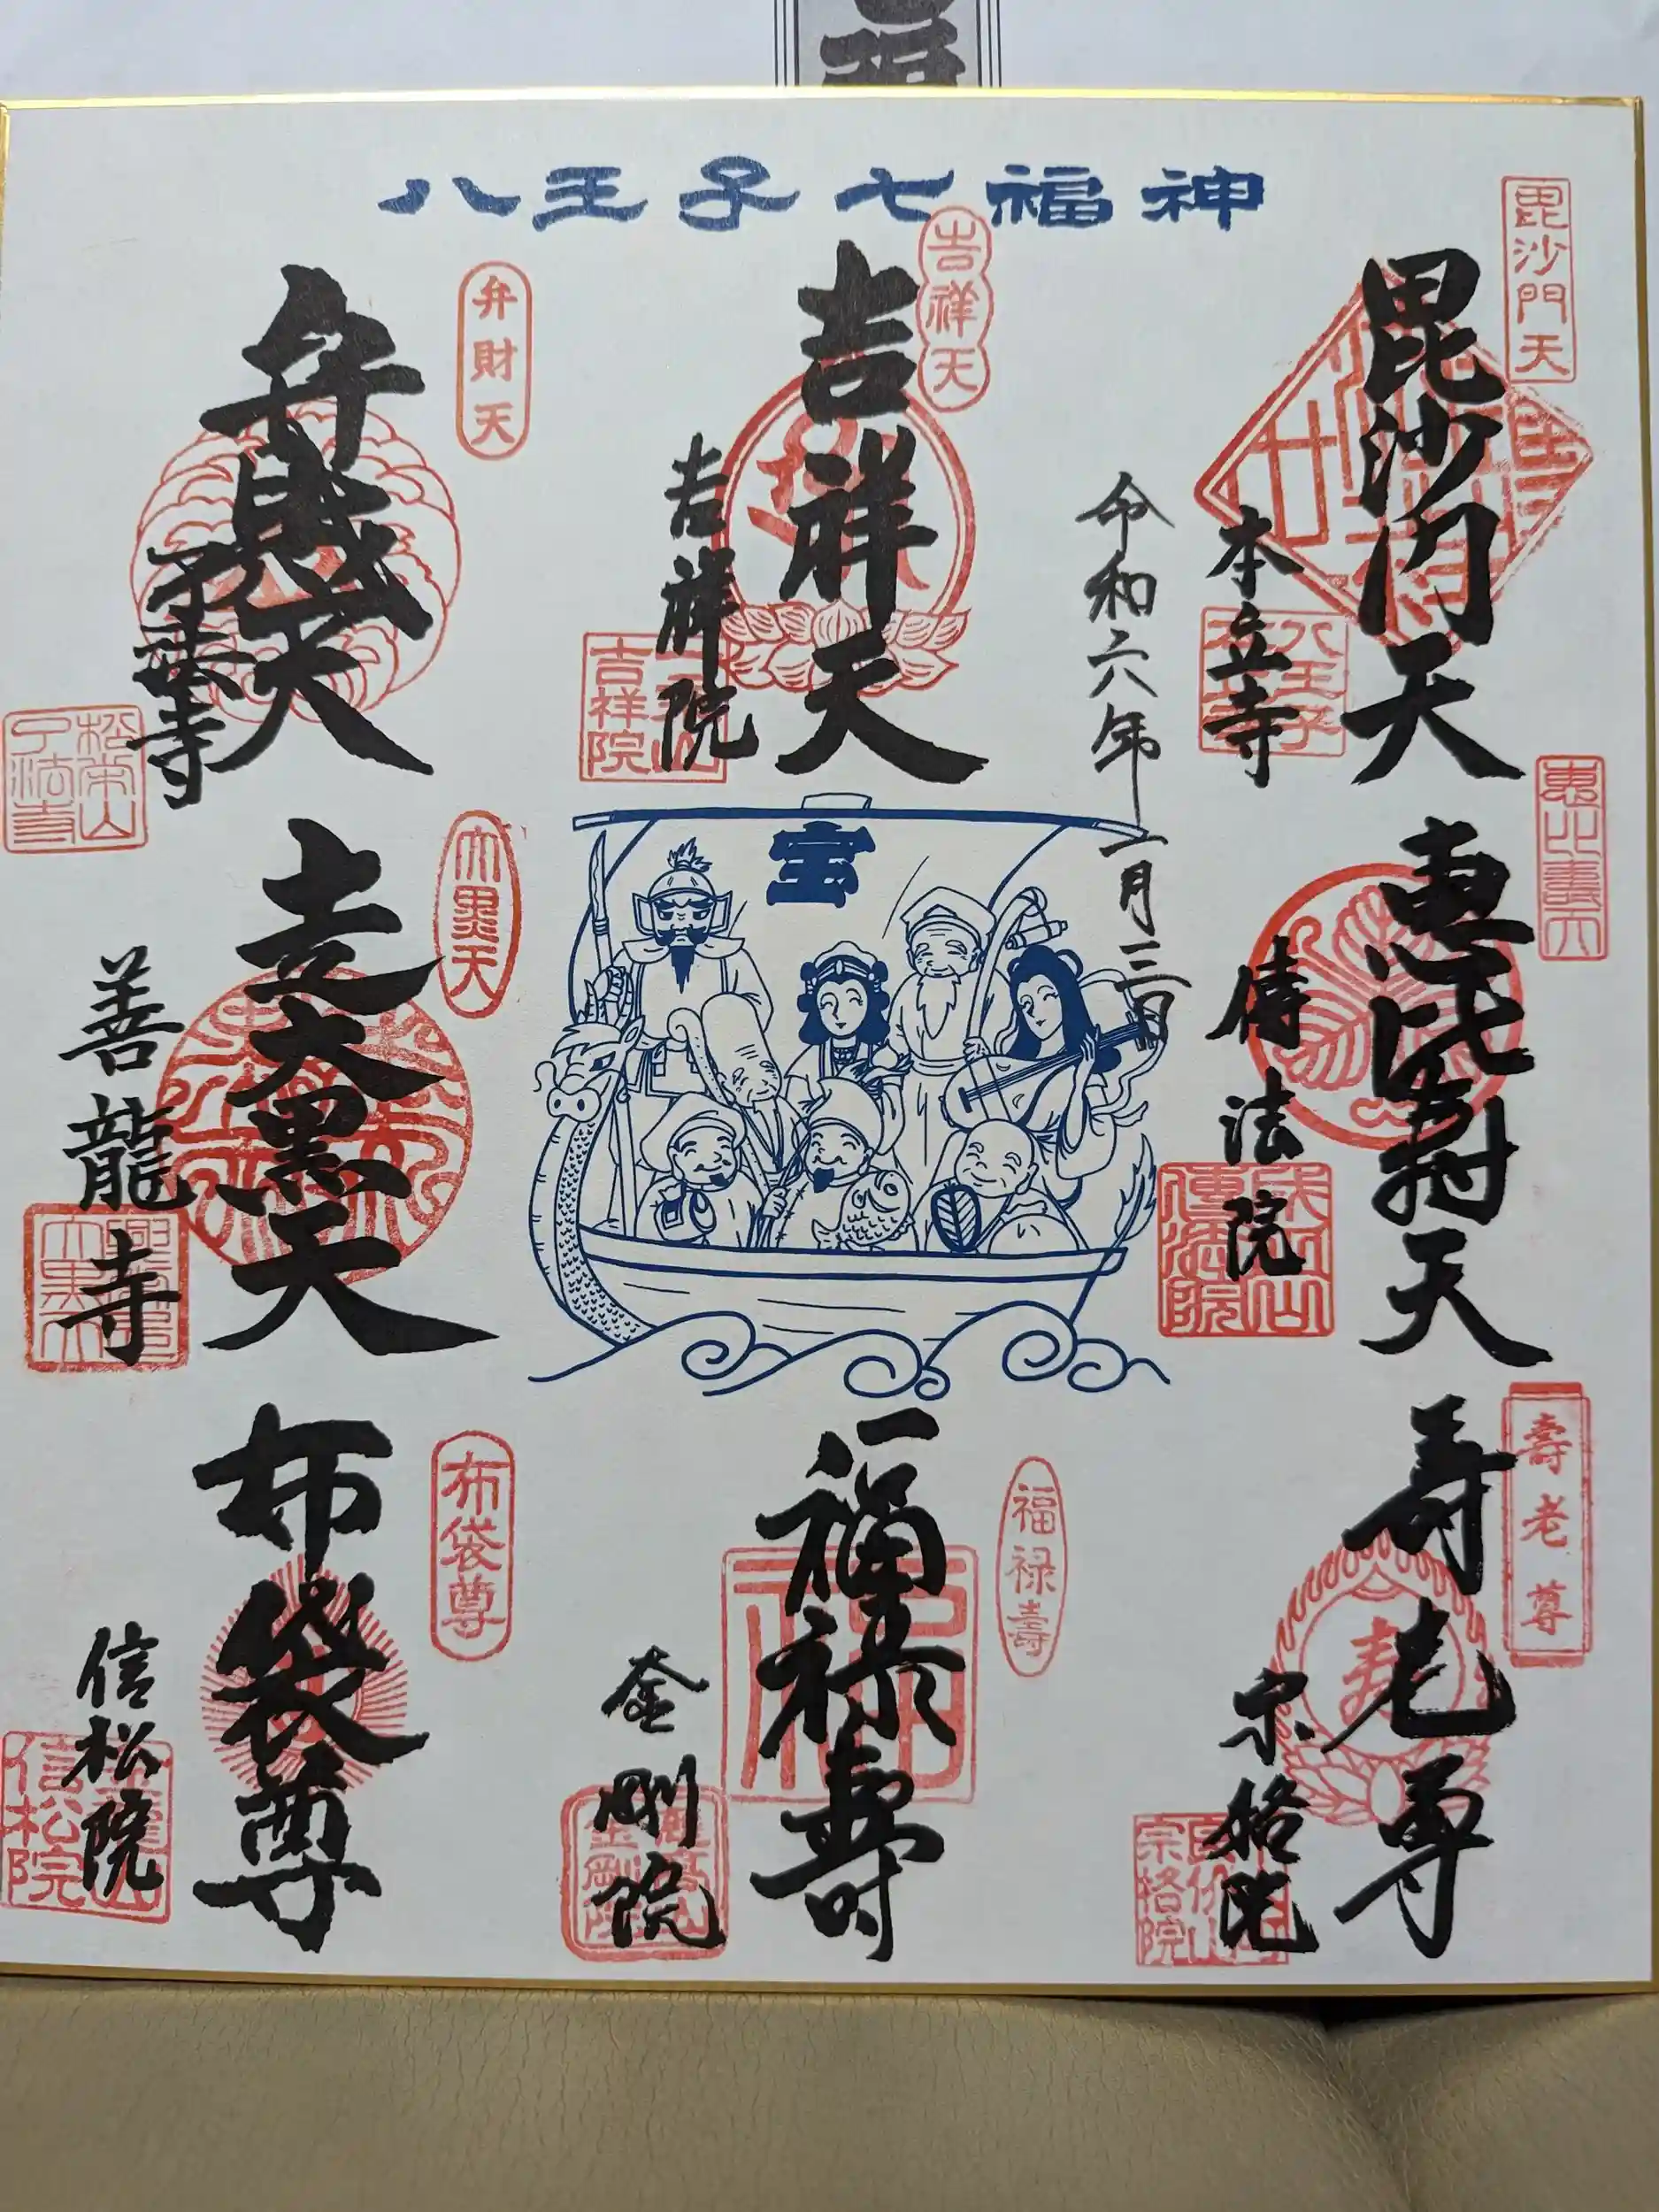 八王子七福神
毘沙門天
毘沙門天
本立寺
八王子
令和六年一月三日
吉祥天
吉祥天
吉祥院
吉祥院
弁財天
弁財天
了法寺
松栄山
了法寺
恵比寿天
恵比寿天
傳法院
成田山
傳法院
宝
大黒天
走大黒天
善龍寺
大黒天
寿老尊
壽老尊
宗格院
宗格院
福禄寿
福禄壽
福
金剛院
金剛院
布袋尊
布袋尊
信松院
信松院